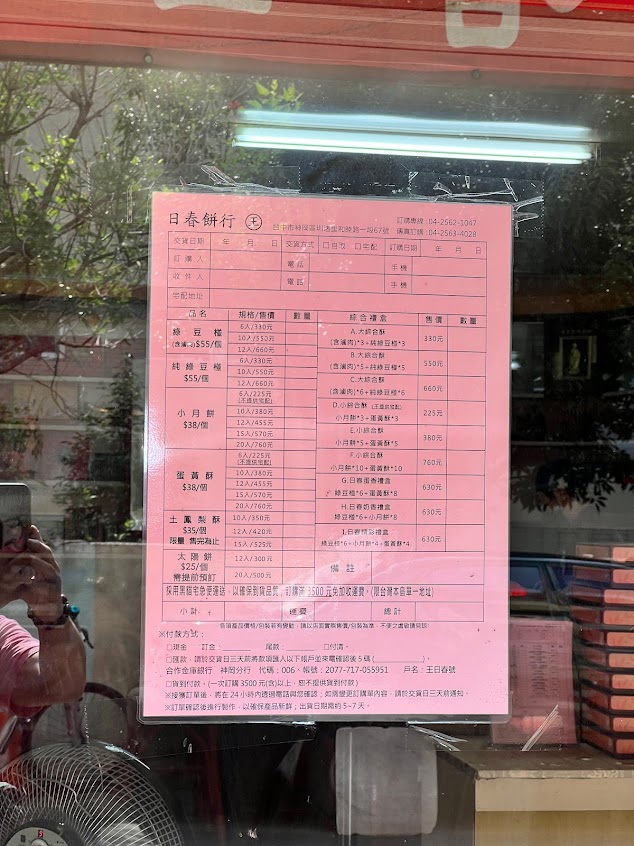 日春餅行 王
台中市神岡區圳堵里和睦路一段67號
訂購專線:04-2562-1047
傳真訂購:04-2563-4028
交貨日期 年 月 日 交貨方式 口自取 口宅配 訂購日期 年 月 日
訂購人 電話 手機
收件人 電話 手機
宅配地址
品名 規格/售價 數量 綜合禮盒 售價 數量
綠豆椪
(含滷肉)$55/個
6入/330元
10入/550元
12入/660元
純綠豆椪
$55/個
6入/330元
10入/550元
12入/660元
小月餅
$38/個
6入/225元
(不提供宅配)
10入/380元
12入/455元
15入/570元
20入/760元
蛋黃酥
$38/個
6入/225元
(不提供宅配)
10入/380元
12入/455元
15入/570元
20入/760元
土鳳梨酥
$35/個
限量 售完為止
10入/350元
12入/420元
15入/525元
太陽餅
$25/個
需提前預訂
12入/300元
20入/500元
A.大綜合酥
(含滷肉)*3+純綠豆椪*3
330元
B.大綜合酥
(含滷肉)*5+純綠豆椪*5
550元
C.大綜合酥
(含滷肉)*6+純綠豆椪*6
660元
D.小綜合酥 (不提供宅配)
小月餅*3+蛋黃酥*3
225元
E.小綜合酥
小月餅*5+蛋黃酥*5
380元
F.小綜合酥
小月餅*10+蛋黃酥*10
760元
G.日春蛋香禮盒
綠豆椪*6+蛋黃酥*8
630元
H.日春奶香禮盒
綠豆椪*6+小月餅*8
630元
I.日春精彩禮盒
綠豆椪*6+小月餅*4+蛋黃酥*4
630元
備註
採用黑貓宅急便運送,以確保到貨品質,訂購滿 3500 元免加收運費。(限台灣本島單一地址)
小計: 運費 總計
各項產品價格/包裝若有變動,請以店面實際售價/包裝為準,不便之處敬請見諒!
※付款方式:
口現金 訂金: 尾款: 口付清。
口匯款,請於交貨日三天前將款項匯入以下帳戶並來電確認後5碼( )。
合作金庫銀行 神岡分行 代碼:006,帳號:2077-717-055951 戶名:王日春號
口貨到付款。(一次訂購3500元(含)以上,恕不提供貨到付款)
※接獲訂單後,將在24小時內透過電話與您確認;如需變更訂購單內容,請於交貨日三天前通知。
※訂單確認後進行製作,以確保產品新鮮;出貨日期需約5~7天。